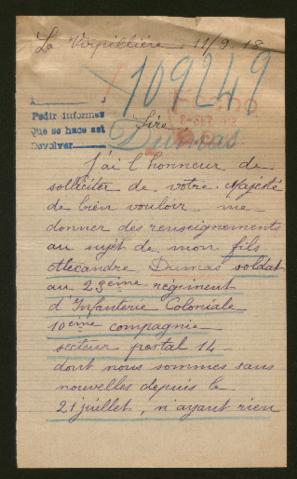 La Verpillière 11/9.18
109249
A
Pedir informes
Que se hace así
Devolver
Sire
Dumas
J'ai l'honneur de
solliciter de votre Majesté
de bien vouloir me
donner des renseignements
au sujet de mon fils
Alexandre Dumas soldat
au 23eme régiment
d'Infanterie Coloniale
10eme compagnie
secteur postal 14
dont nous sommes sans
nouvelles depuis le
21 juillet, n'ayant rien